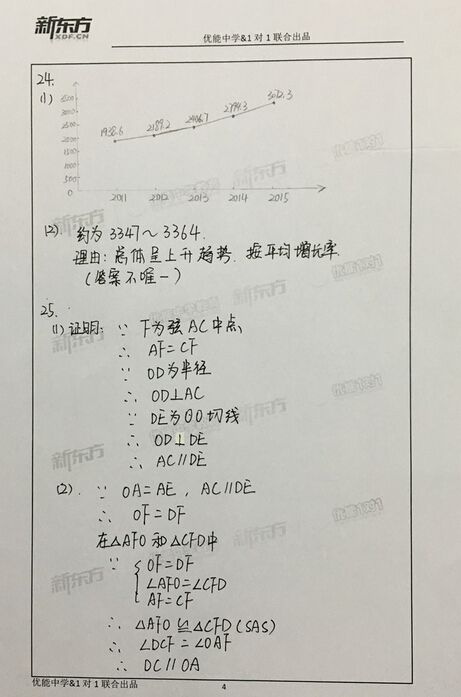 新东方
XDF.CN
优能中学&1对1联合出品
24.
(1)
3500
3000
2500
2000
1500
1000
500
0
1938.6
2189.2
2406.7
2794.3
3072.3
2011 2012 2013 2014 2015
(2). 约为3347～3364.
理由：总体呈上升趋势.按平均增长率.
(答案不唯一)
25.
(1)证明：∵ F为弦AC中点
∴ AF=CF
∵ OD为半径
∴ OD⊥AC
∵ DE为⊙O切线
∴ OD⊥DE
∴ AC∥DE
(2). ∵ OA=AE，AC∥DE
∴ OF=DF
在△AFO和△CFD中
∵ { OF=DF
∠AFO=∠CFD
AF=CF
∴ △AFO≌△CFD(SAS)
∴ ∠DCF=∠OAF
∴ DC∥OA
优能中学&1对1联合出品
4